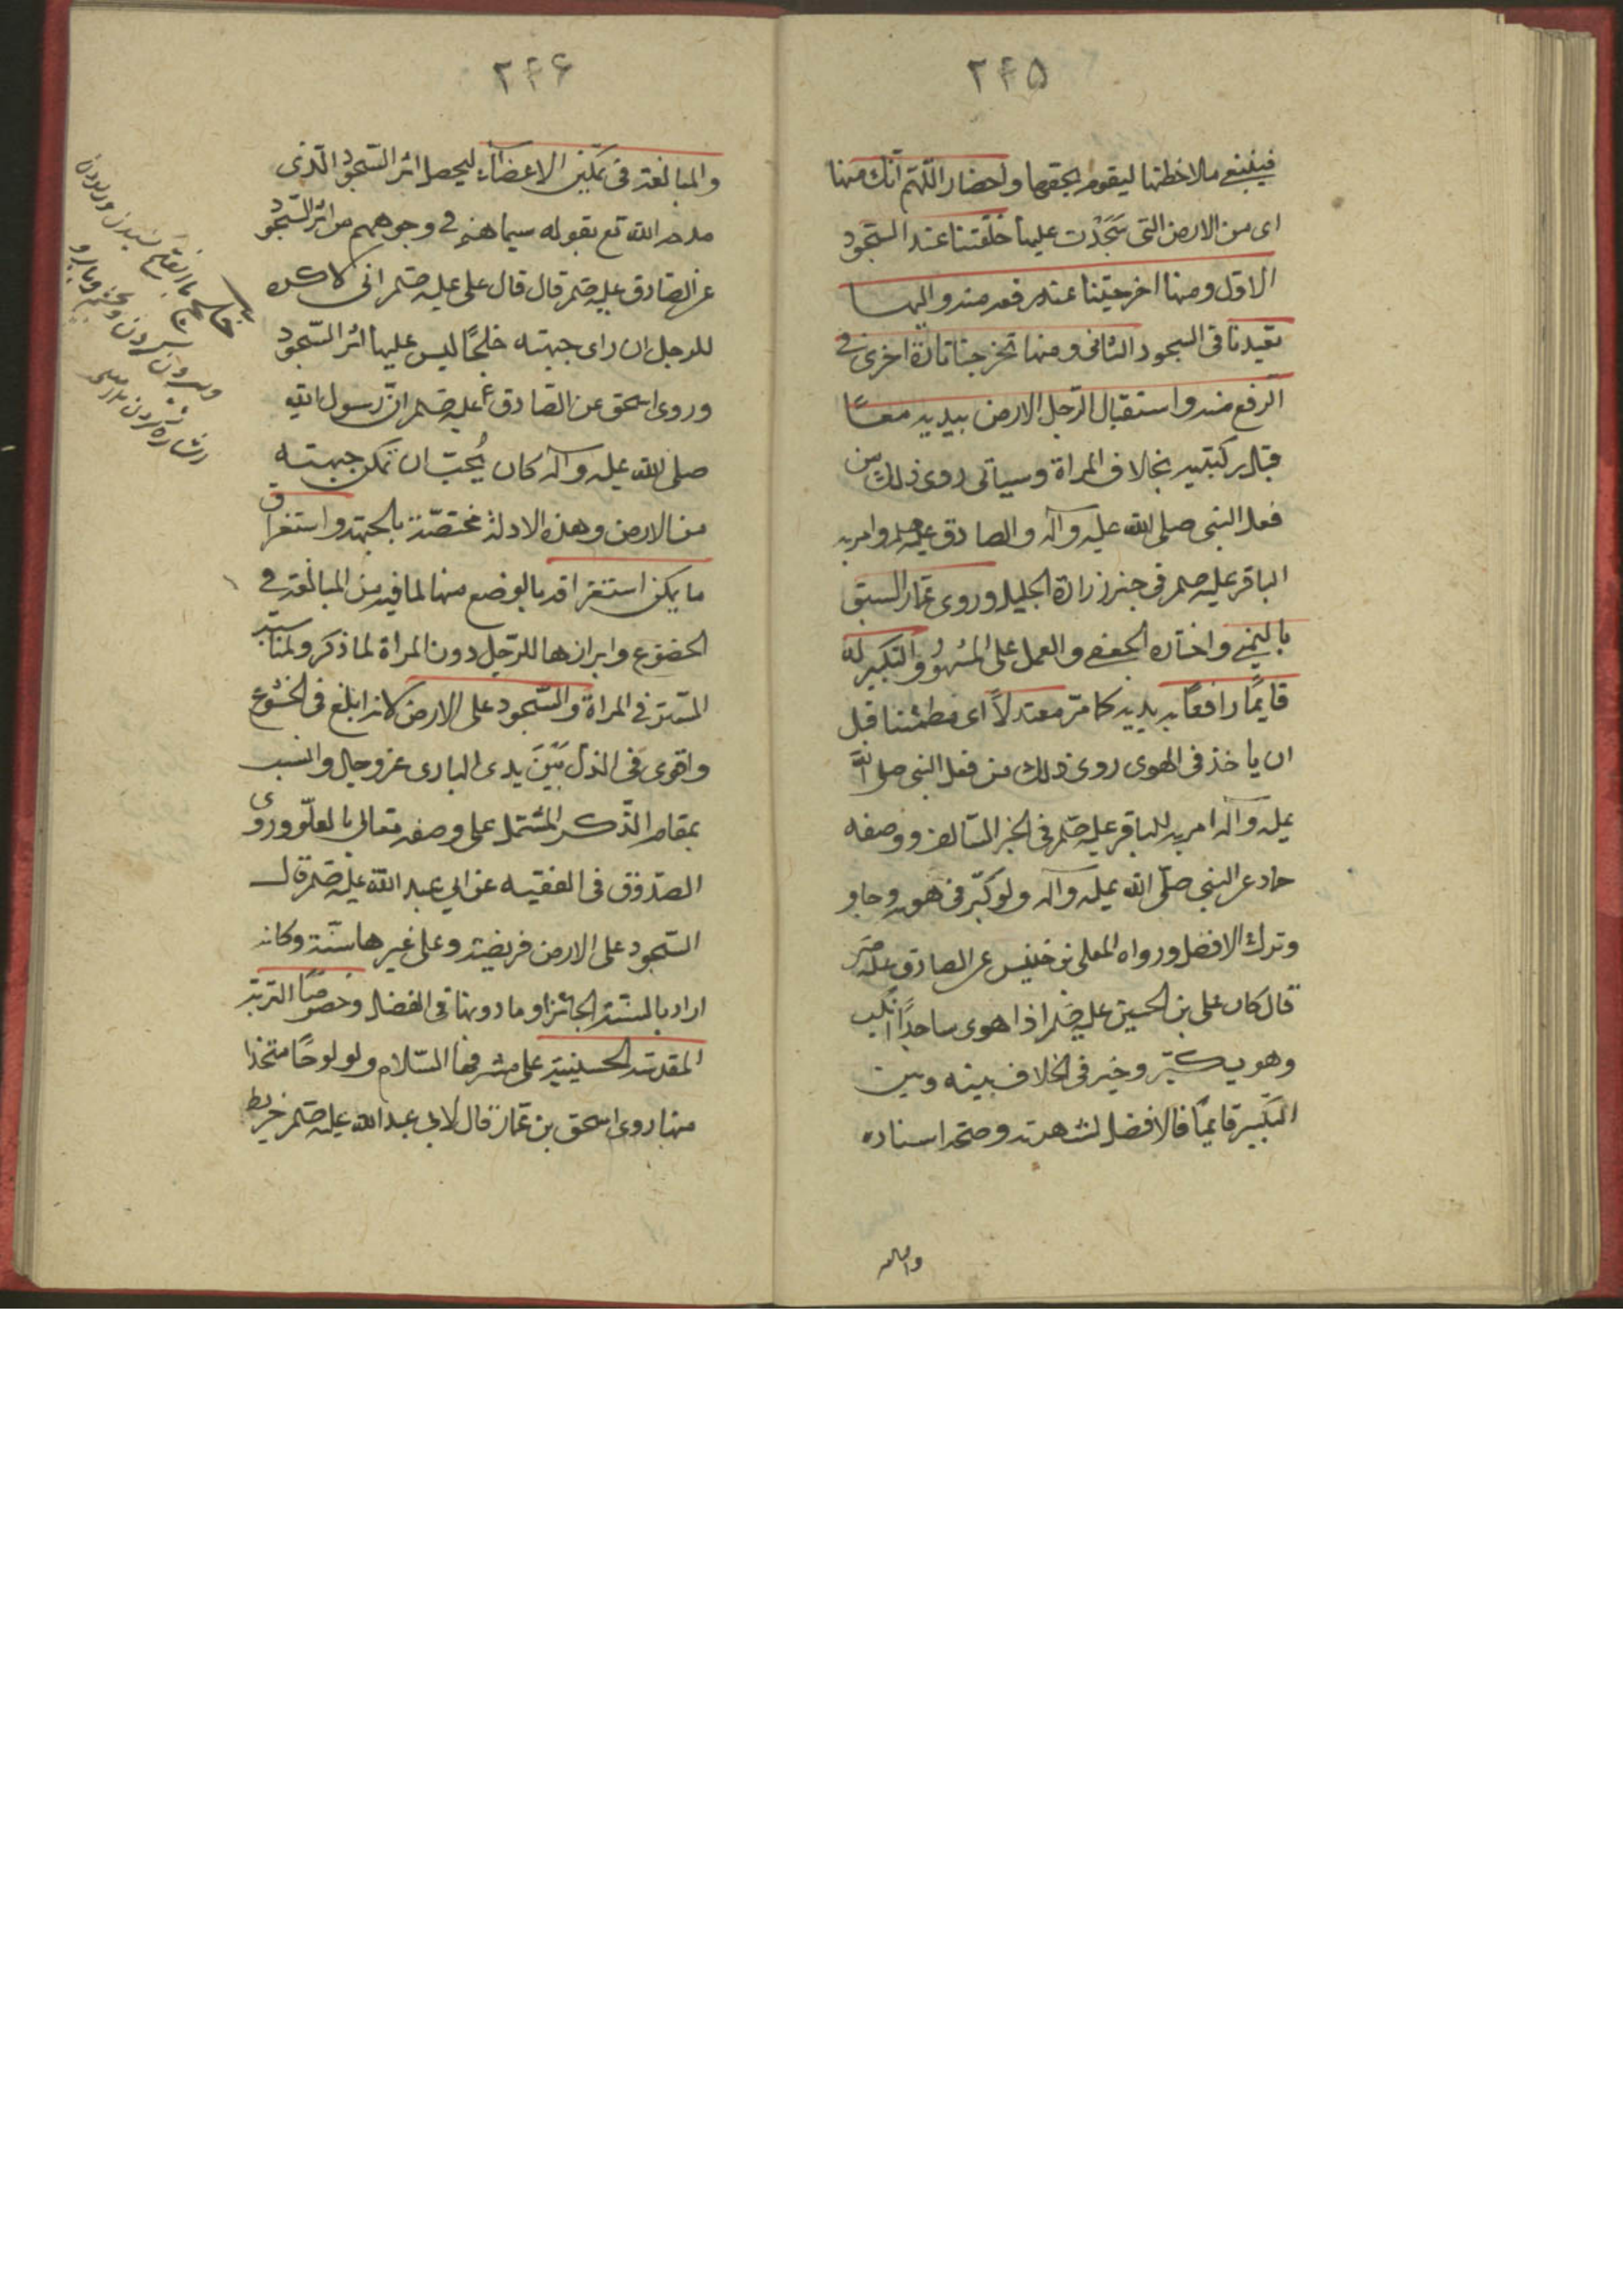 ۲۴۵
فينبغي ملاحظتها ليقوم بحقها واحضار اللهم انك منها
اى من الارض التى سَجَدْت عليها خلقتنا عند السّجود
الاوّل ومنها اخرجتنا عند رفعه منه واليها
تعيدنا فى السجود الثانى ومنها تخرجنا تارة اخرى فى
الرفع منه واستقبال الرجل الارض بيديه معًا
قبل ركبتيه بخلاف المراة وسياتى روى ذلك من
فعل النبى صلى الله عليه وآله والصادق علیهلم وامر به
الباقر عليه صلم فى خبر زرارة الجليل وروى عمّار السبق
باليمنى واختاره الجعفى والعمل على المشهُور والتكبير له
قايمًا رافعًا به يديه كما مرّ معتدلاً اى مطمئنا قبل
ان ياخذ فى الهوى روى ذلك من فعل النبى صل اللّه
عليه وآله امر به للباقر عليه صلم فى الخبر السّالف ووصفه
حماد عن النبى صلّى الله عليه وآله ولو كبّر فى هويه جاز
وترك الافضل ورواه المعلى بن خنيس عن الصادق عليه صلم
قال كان على بن الحسين عليه صلم اذا هوى ساجدًا انكب
وهو يكبّر وخيّر فى الخلاف بينه وبين
التكبير قايمًا فالافضل لشهرته وصحّة اسناده
۲۴۶
والمبالغة فى تمكين الاعضآء ليحصل اثر السّجود الّذى
مدحه الله تع بقوله سيماهم فى وجوههم من اثر السّجود
عن الصادق عليه صلم قال قال على عليه صلم انى لاكره
للرجل ان راى جبهته خلجًا ليس عليها اثر السّجود
وروى اسحق عن الصّادق عليه صلم انّ رسول اللّه
صلى الله عليه وآله كان يُحبّ ان تمكن جبهته
من الارض وهذه الادلة مختصّة بالجبهة واستغراق
ما يمكن استغراقه بالوضع منها لما فيه من المبالغة فى
الخضوع وابرازها للرّجل دون المراة لما ذكر ولمناسبة
السّتر فى المراة والسّجود على الارض لانه ابلغ فى الخشوع
واقوى فى الذل بَيْنَ يدى البارى عز وجل وانسب
بمقام الذّكر المشتمل على وصفه تعالى بالعلّو وروى
الصّدوق فى الفقيه عن ابي عبد اللّه عليه صلم قال
السّجود على الارض فريضة وعلى غيرها سنّة وكانه
اراد بالسنّة الجائز او ما دونها فى الفضل وخصوصًا التربة
المقدسة الحسينية على مشرفها السّلام ولو لوحًا متخذا
منها روى اسحق بن عمّار قال لابي عبد الله عليه صلم خريطة